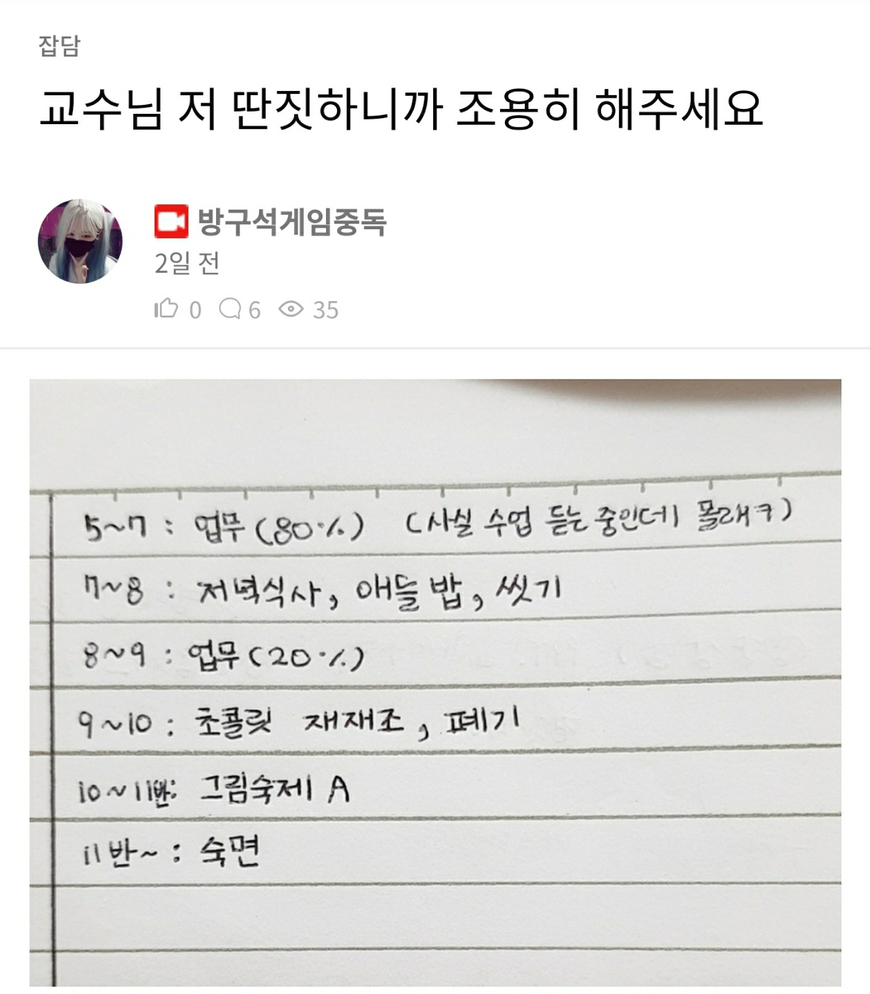 잡담
교수님 저 딴짓하니까 조용히 해주세요
방구석게임중독
2일 전
0 6 35
5~7 : 업무(80%) (사실 수업 듣는 중인데 몰래ㅋ)
7~8 : 저녁식사, 애들 밥, 씻기
8~9 : 업무(20%)
9~10 : 초콜릿 재재조, 폐기
10~11반: 그림숙제 A
11반~ : 숙면